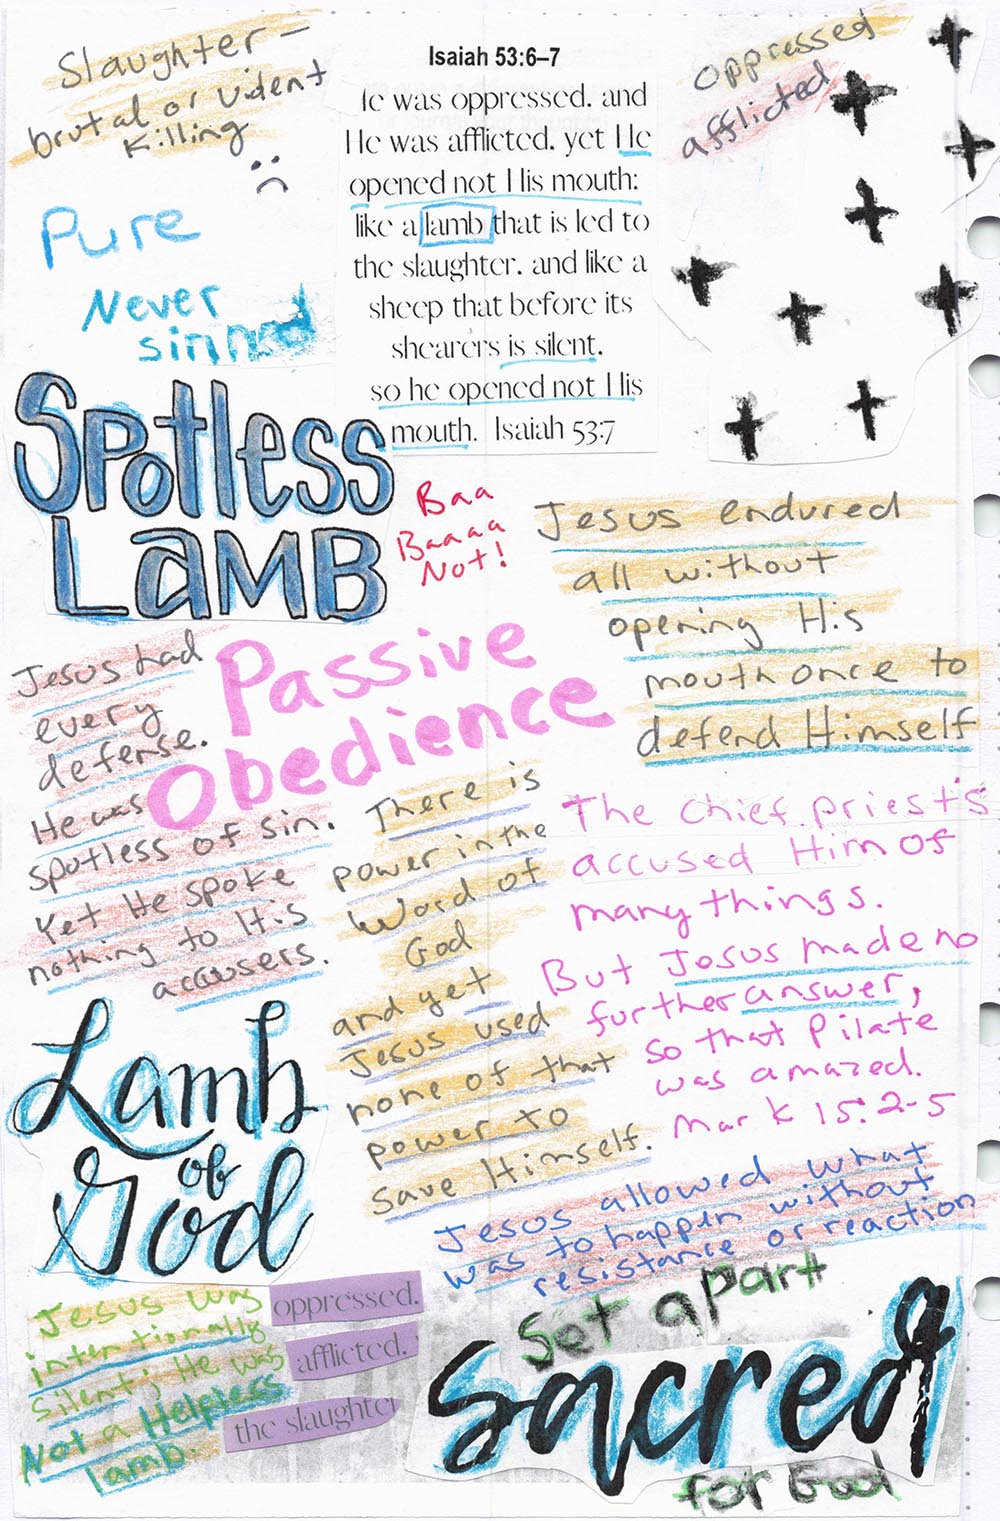 Slaughter –
brutal or vident
Killing
Isaiah 53:6–7
He was oppressed. and
He was afflicted. yet He
opened not His mouth:
like a lamb that is led to
the slaughter. and like a
sheep that before its
shearers is silent.
so he opened not His
mouth. Isaiah 53:7
oppressed
afflicted
Pure
Never
sinned
Spotless
Lamb
Baa
Baaaa
Not!
Jesus endured
all without
opening His
mouth once to
defend Himself
Passive
Obedience
Jesus had
every
defense.
He was
spotless of sin.
Yet He spoke
nothing to His
accusers.
There is
power in the
Word of
God
and yet
Jesus used
none of that
power to
save Himself.
The chief priests
accused Him of
many things.
But Jesus made no
further answer,
so that Pilate
was amazed.
Mark 15:2-5
Lamb
of
God
Jesus allowed what
was to happen without
resistance or reaction
Jesus was
intentionally
silent; He was
Not a Helpless
lamb.
oppressed.
afflicted.
the slaughter
Set apart
Sacred
for God